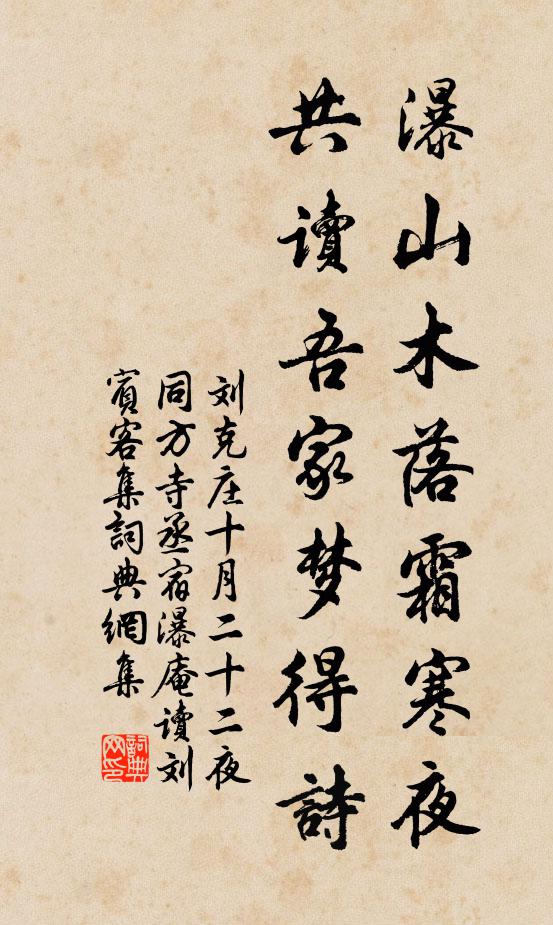 瀑山木落霜寒夜
共讀吾家梦得詩
刘克庄十月二十二夜
同方寺丞宿瀑庵讀刘
賓客集詞典網集
詞典
网印